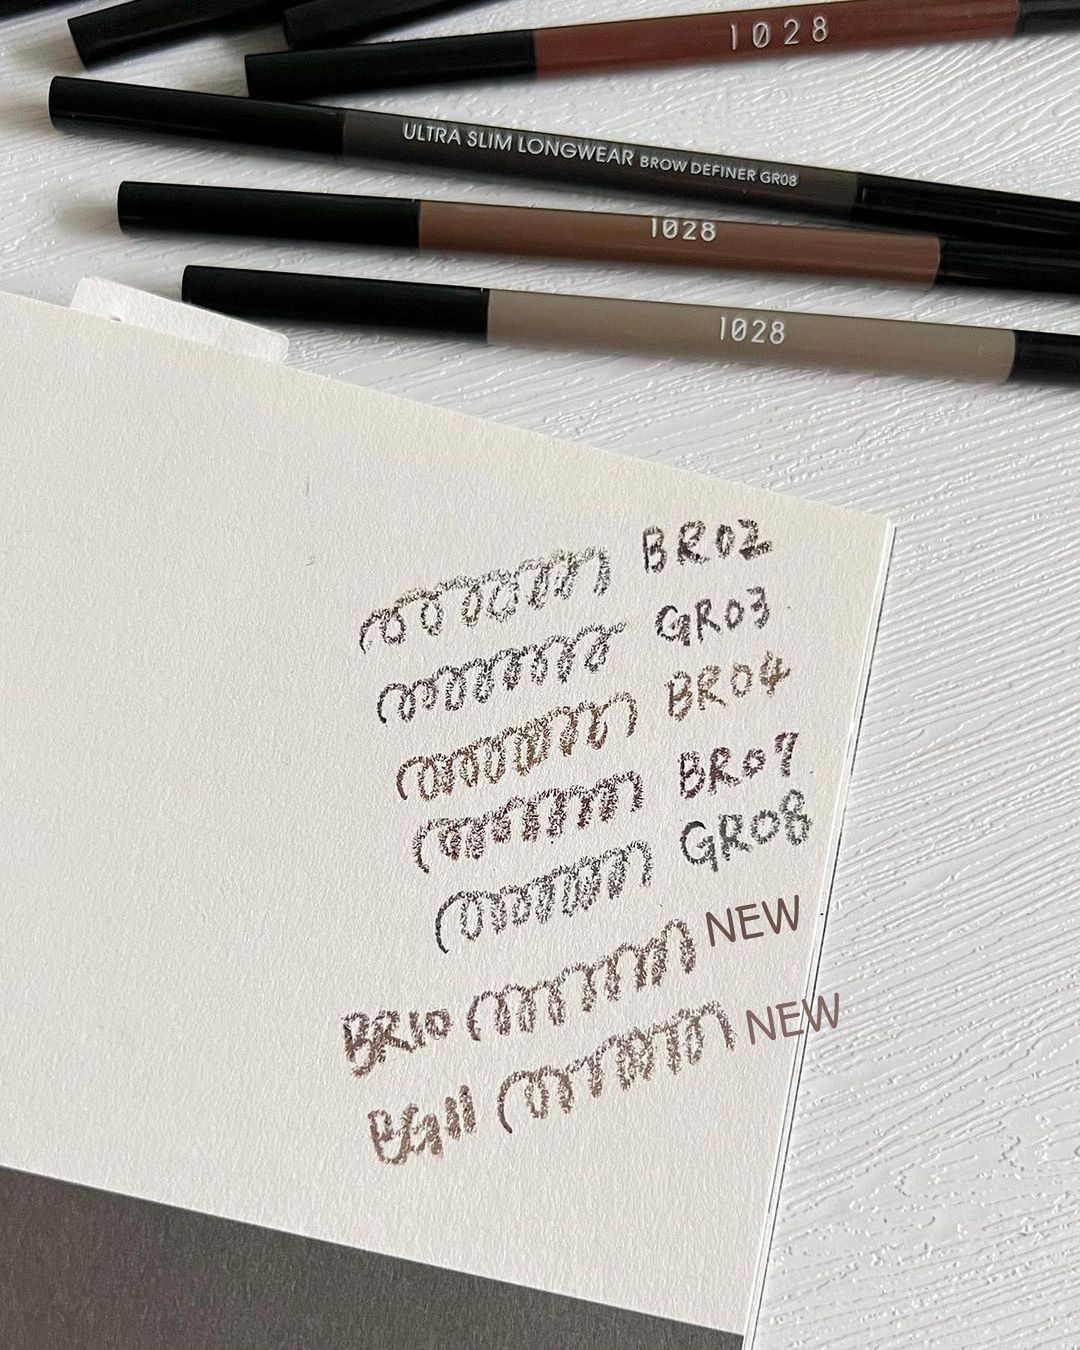 1028
ULTRA SLIM LONGWEAR BROW DEFINER GR08
1028
1028
BR02
GR03
BR04
BR07
GR08
BR10 NEW
NEW